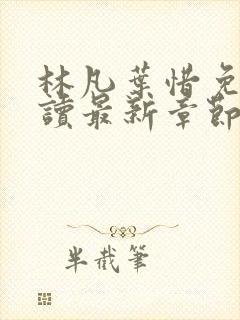 林凡葉惜免
讀最新章節
半截筆